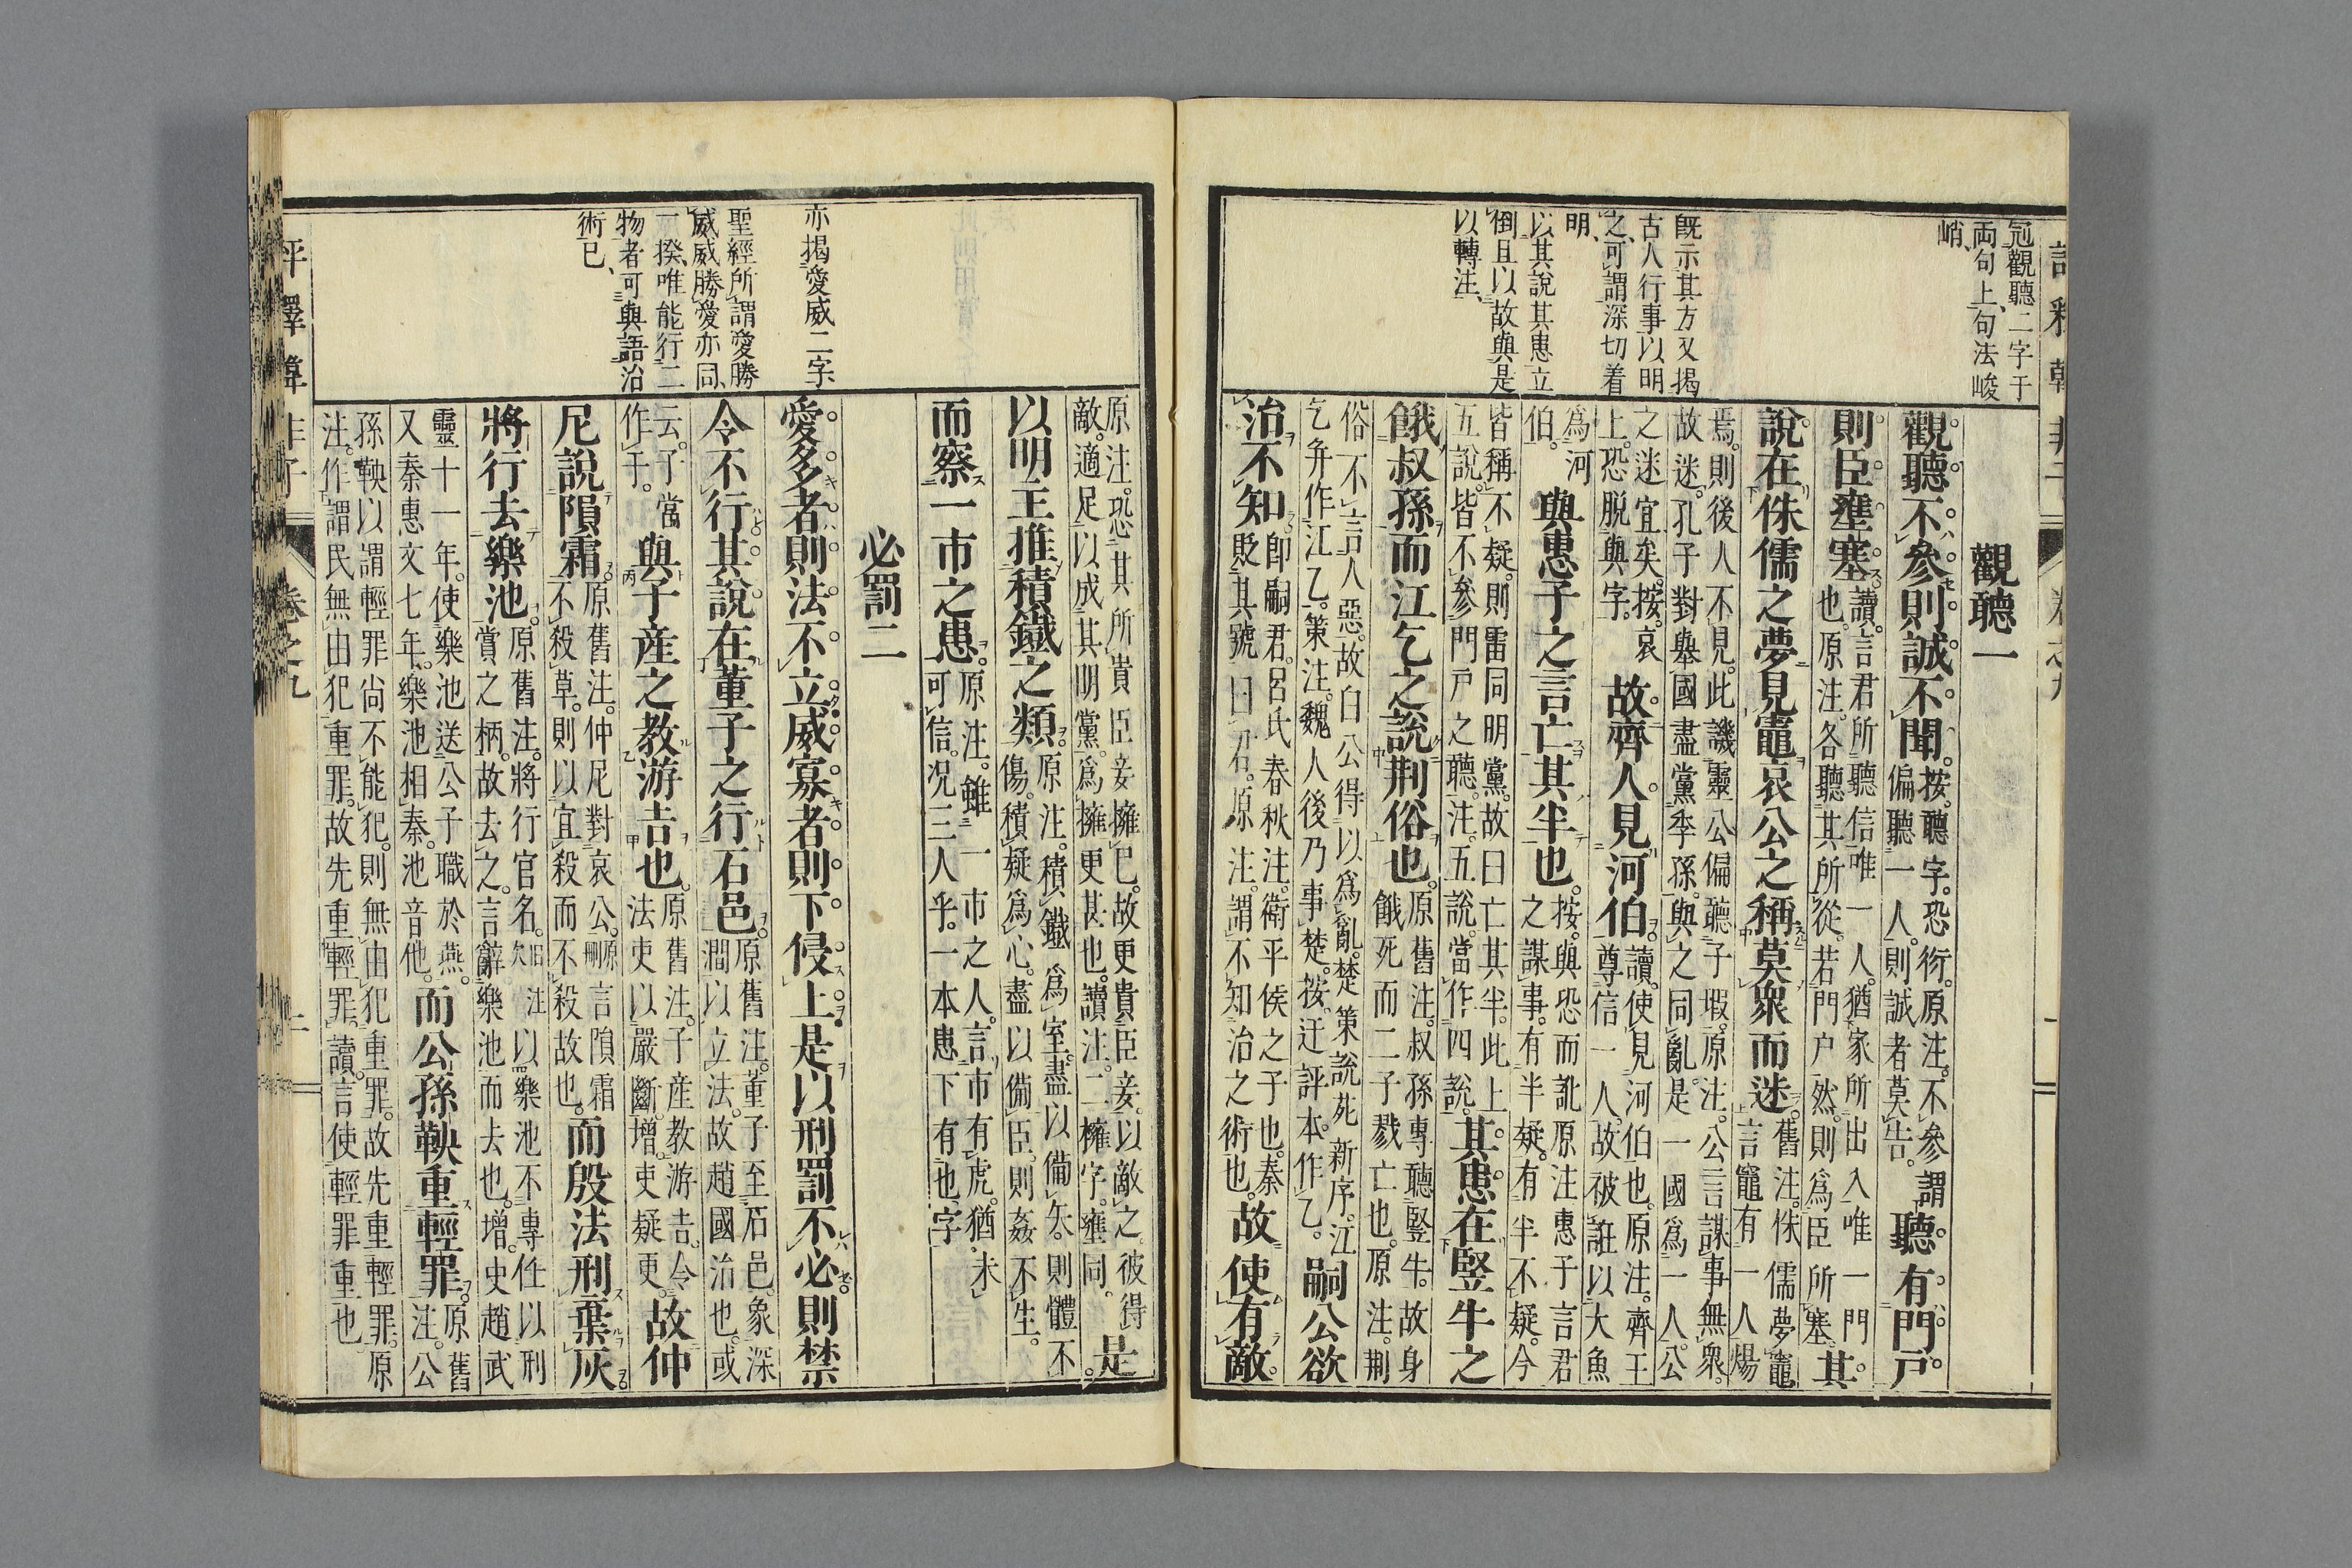 冠觀聽二字于
両句上句法峻
峭、
既示其方又揭
古人行事以明
之可謂深切着
明、
以其說其患立
倒且以故與是
以轉注、
觀聽一
觀聽不參則誠不聞。按。聽字。恐衍。原注。不參謂
偏聽一人。則誠者莫告。
聽有門戸
則臣壅塞。讀。言君所聽信唯一人。猶家所出入唯一門
也。原注。各聽其所從。若門戸然。則爲臣所塞。
其
說在侏儒之夢見竈哀公之稱莫衆而迷。舊注。侏儒夢竈
言竈有一人煬
焉。則後人不見。此譏靈公偏聽子瑕。原注。公言謀事無衆。
故迷。孔子對舉國盡黨季孫。與之同亂。是一國爲一人。公
之迷宜矣。按。哀
上恐脫與字。
故齊人見河伯。讀。使見河伯也。原注。齊王
尊信一人。故被誑以大魚
爲河
伯。
與惠子之言亡其半也。按。與恐而訛原注惠子言君
之謀事。有半疑。有半不疑。今
皆稱不疑。則雷同明黨。故曰亡其半。此上
五說。皆不參門戸之聽。注。五說。當作四說。
其患在竪牛之
餓叔孫而江乞之說荆俗也。原舊注。叔孫專聽竪牛。故身
餓死而二子戮亡也。原注。荆
俗不言人惡。故白公得以爲亂。楚策說苑新序。江
乞弁作江乙。策注。魏人後乃事楚。按。迂評本。作乙。
嗣公欲
治不知即嗣君。呂氏春秋注。衛平侯之子也。秦
貶其號曰君。原注。謂不知治之術也。
故使有敵
亦揭愛威二字
聖經所謂愛勝
威威勝愛亦同
一揆、唯能行二
物者可與語治
術已、
原注。恐其所貴臣妾擁已。故更貴臣妾。以敵之。彼得
敵。適足以成其明黨。爲擁更甚也。讀注。二擁字。壅同。
是
以明主推積鐵之類。原注。積鐵爲室。盡以備矢。則體不
傷。積疑爲心。盡以備臣。則姦不生。
而察一市之患。原注。雖一市之人。言市有虎。猶未
可信。况三人乎。一本患下有也字
必罰二
愛多者則法不立威寡者則下侵上是以刑罰不必則禁
令不行其說在董子之行石邑。原舊注。董子至石邑。象深
澗以立法。故趙國治也。或
云。了當
作于。
與子產之教游吉也。原舊注。子產教游吉。令
法吏以嚴斷。增。吏疑更。
故仲
尼說隕霜。原舊注。仲尼對哀公。刪原言隕霜
不殺草。則以宜殺而不殺故也。
而殷法刑棄灰
將行去樂池。原舊注。將行官名。欠旧注以樂池不專任以刑
賞之柄。故去之。言辭樂池而去也。增。史趙武
靈十一年。使樂池送公子職於燕。
又秦惠文七年。樂池相秦。池音他。
而公孫鞅重輕罪。原舊
注。公
孫鞅以謂輕罪尙不能犯。則無由犯重罪。故先重輕罪。原
注。作謂民無由犯重罪。故先重輕罪。讀。言使輕罪重也
評釋韓非子
卷之九